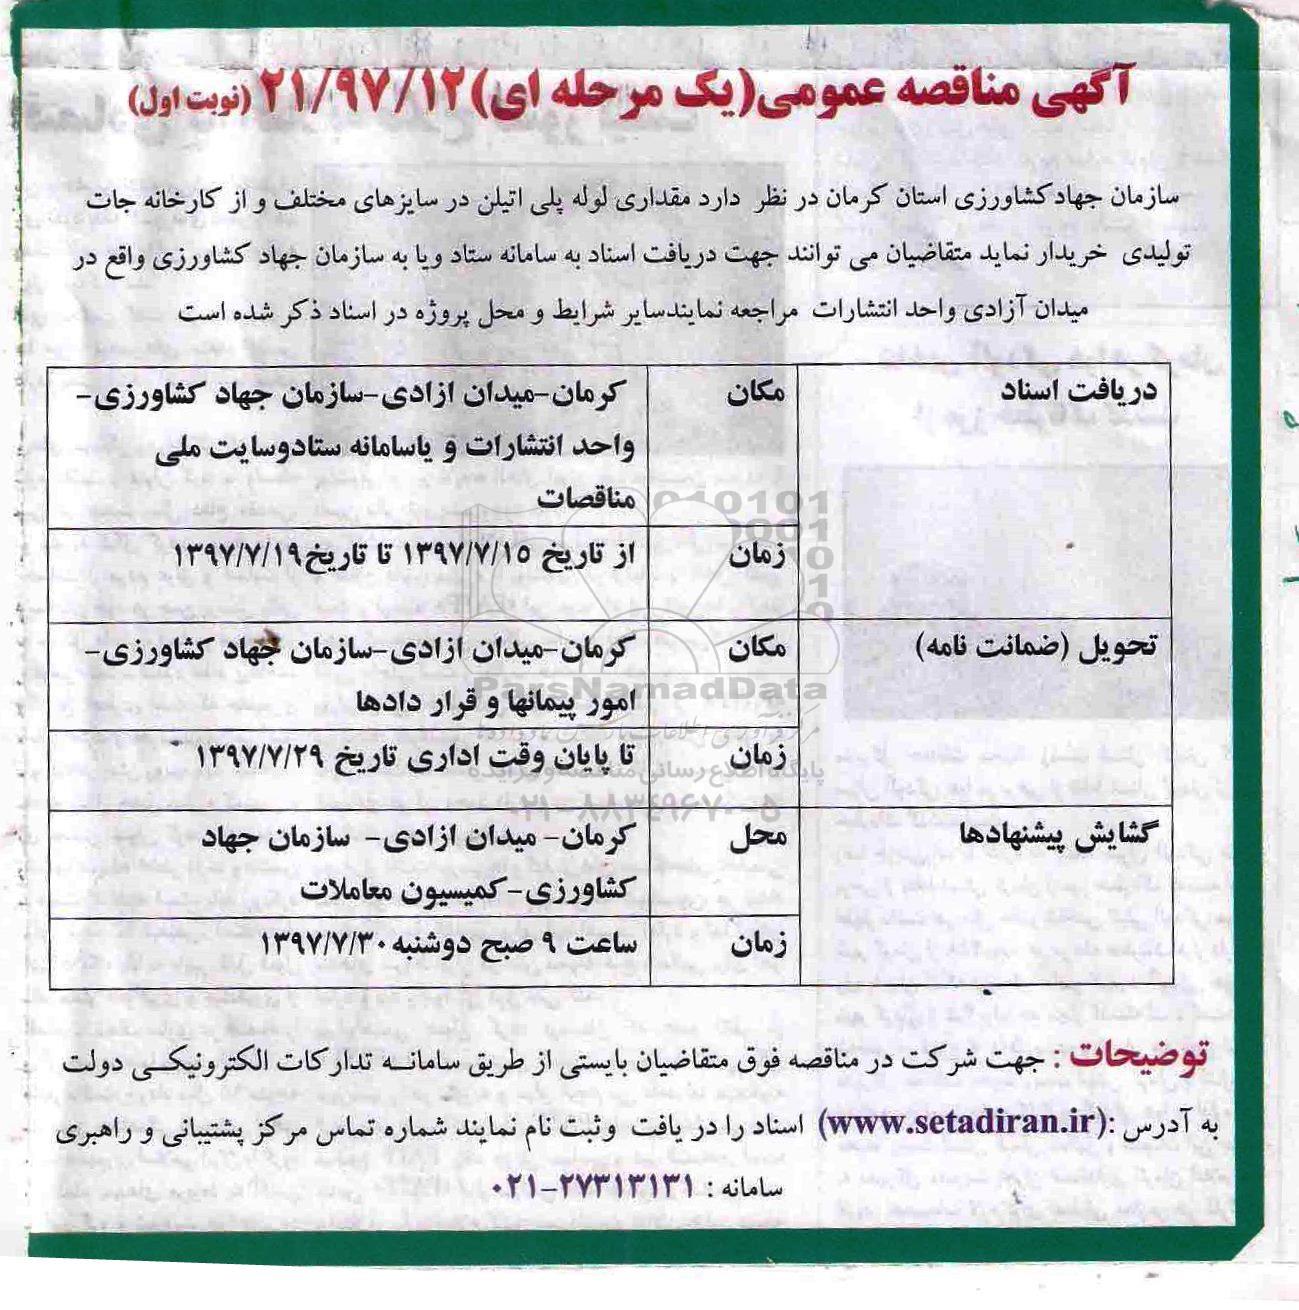 آگهی مناقصه عمومی(یک مرحله ای)۲۱/۹۷/۱۲ (نوبت اول)
سازمان جهادکشاورزی استان کرمان در نظر دارد مقداری لوله پلی اتیلن در سایزهای مختلف و از کارخانه جات
تولیدی خریدار نماید متقاضیان می توانند جهت دریافت اسناد به سامانه ستاد ویا به سازمان جهاد کشاورزی واقع در
میدان آزادی واحد انتشارات مراجعه نمایندسایر شرایط و محل پروژه در اسناد ذکر شده است
دریافت اسناد
مکان
کرمان-میدان ازادی-سازمان جهاد کشاورزی-
واحد انتشارات و یاسامانه ستادوسایت ملی
مناقصات
زمان
از تاریخ ۱۳۹۷/۷/۱۵ تا تاریخ۱۳۹۷/۷/۱۹
تحویل (ضمانت نامه)
مکان
کرمان-میدان ازادی-سازمان جهاد کشاورزی-
امور پیمانها و قرار دادها
زمان
تا پایان وقت اداری تاریخ ۱۳۹۷/۷/۲۹
گشایش پیشنهادها
محل
کرمان- میدان ازادی- سازمان جهاد
کشاورزی-کمیسیون معاملات
زمان
ساعت ۹ صبح دوشنبه۱۳۹۷/۷/۳۰
توضیحات : جهت شرکت در مناقصه فوق متقاضیان بایستی از طریق سامانه تدارکات الکترونیکی دولت
به آدرس :(www.setadiran.ir) اسناد را در یافت وثبت نام نمایند شماره تماس مرکز پشتیبانی و راهبری
سامانه : ۰۲۱-۲۷۳۱۳۱۳۱
ParsNamadData
پایگاه اطلاع رسانی مناقصه و مزایده
۰۲۱-۸۸۳۴۹۶۷۰-۵